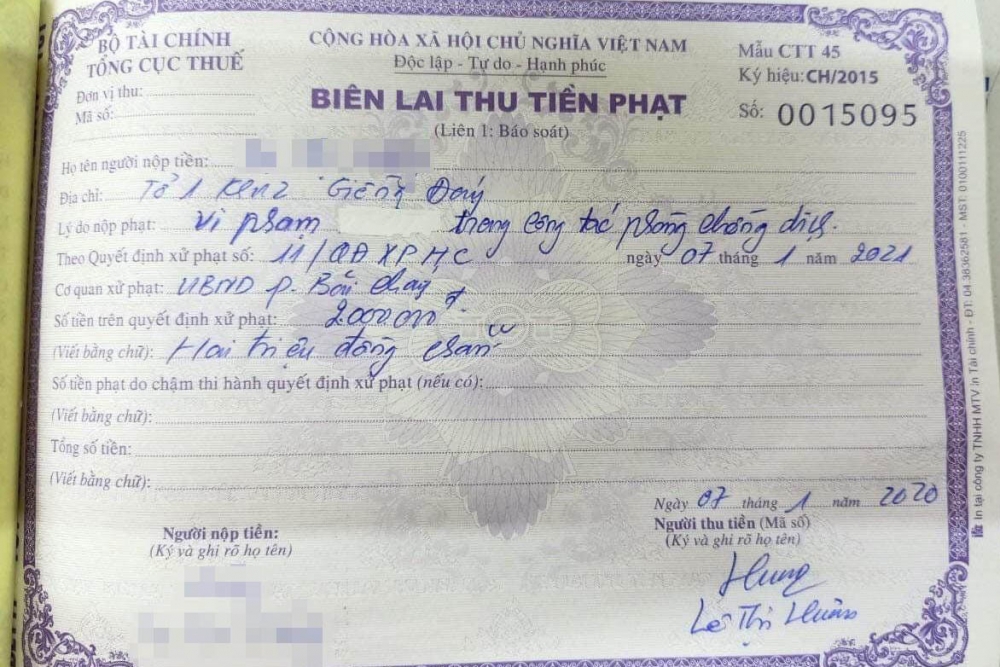 BỘ TÀI CHÍNH
TỔNG CỤC THUẾ
Đơn vị thu:
Mã số:
CỘNG HÒA XÃ HỘI CHỦ NGHĨA VIỆT NAM
Độc lập - Tự do - Hạnh phúc
BIÊN LAI THU TIỀN PHẠT
(Liên 1: Báo soát)
Mẫu CTT 45
Ký hiệu: CH/2015
Số: 0015095
Họ tên người nộp tiền:
Địa chỉ: Tổ 1 Khu 2 Giếng Đáy
Lý do nộp phạt: Vi phạm trong công tác phòng chống dịch.
Theo Quyết định xử phạt số: 11/QĐXPHC ngày 07 tháng 1 năm 2021
Cơ quan xử phạt: UBND p. Bãi Cháy
Số tiền trên quyết định xử phạt: 2000.000đ
(Viết bằng chữ): Hai triệu đồng chẵn
Số tiền phạt do chậm thi hành quyết định xử phạt (nếu có):
(Viết bằng chữ):
Tổng số tiền:
(Viết bằng chữ):
Ngày 07 tháng 1 năm 2020
Người nộp tiền:
(Ký và ghi rõ họ tên)
Người thu tiền (Mã số)
(Ký và ghi rõ họ tên)
Lê Thị
In tại công ty TNHH MTV In Tài chính - ĐT: 04.38362581 - MST: 0100111225